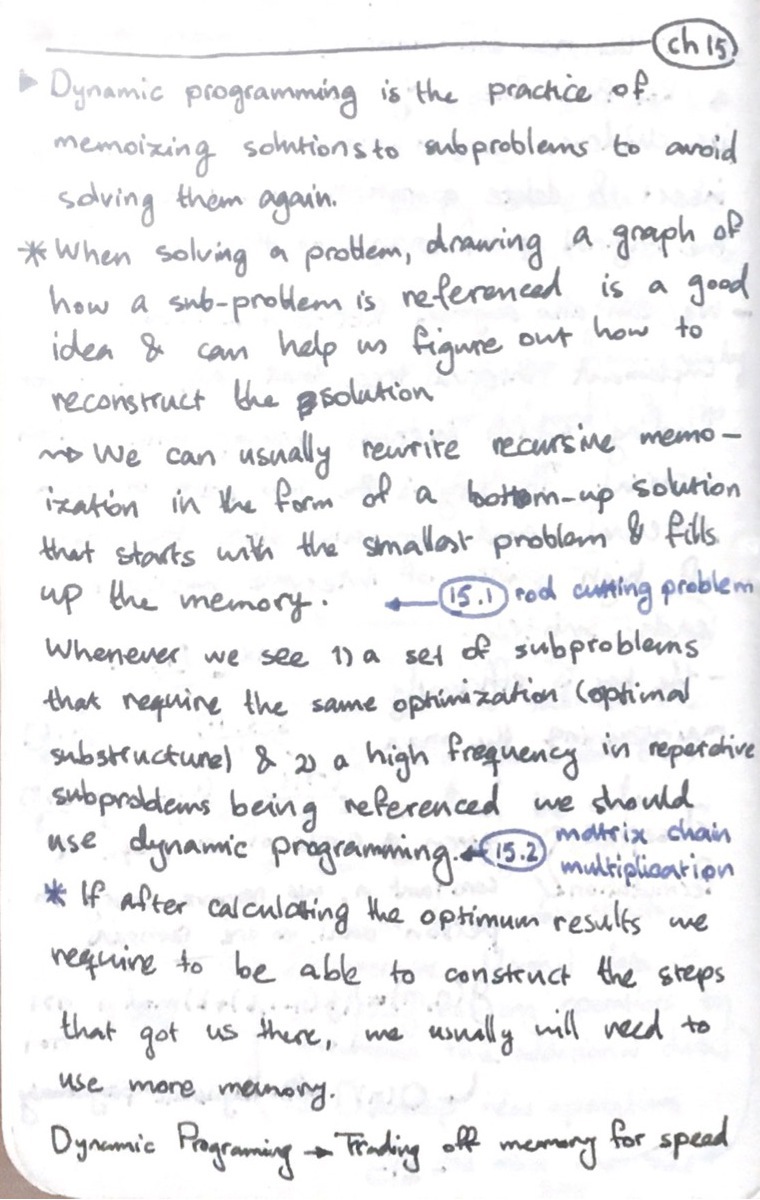 ch 15
▶ Dynamic programming is the practice of
memoizing solutions to subproblems to avoid
solving them again.
* When solving a problem, drawing a graph of
how a sub-problem is referenced is a good
idea & can help us figure out how to
reconstruct the solution
⇝ We can usually rewrite recursive memo-
ization in the form of a bottom-up solution
that starts with the smallest problem & fills
up the memory. ← 15.1 rod cutting problem
Whenever we see 1) a set of subproblems
that require the same optimization (optimal
substructure) & 2) a high frequency in repetetive
subproblems being referenced we should
use dynamic programming. ← 15.2 matrix chain
multiplication
* If after calculating the optimum results we
require to be able to construct the steps
that got us there, we usually will need to
use more memory.
Dynamic Programing → Trading off memory for speed